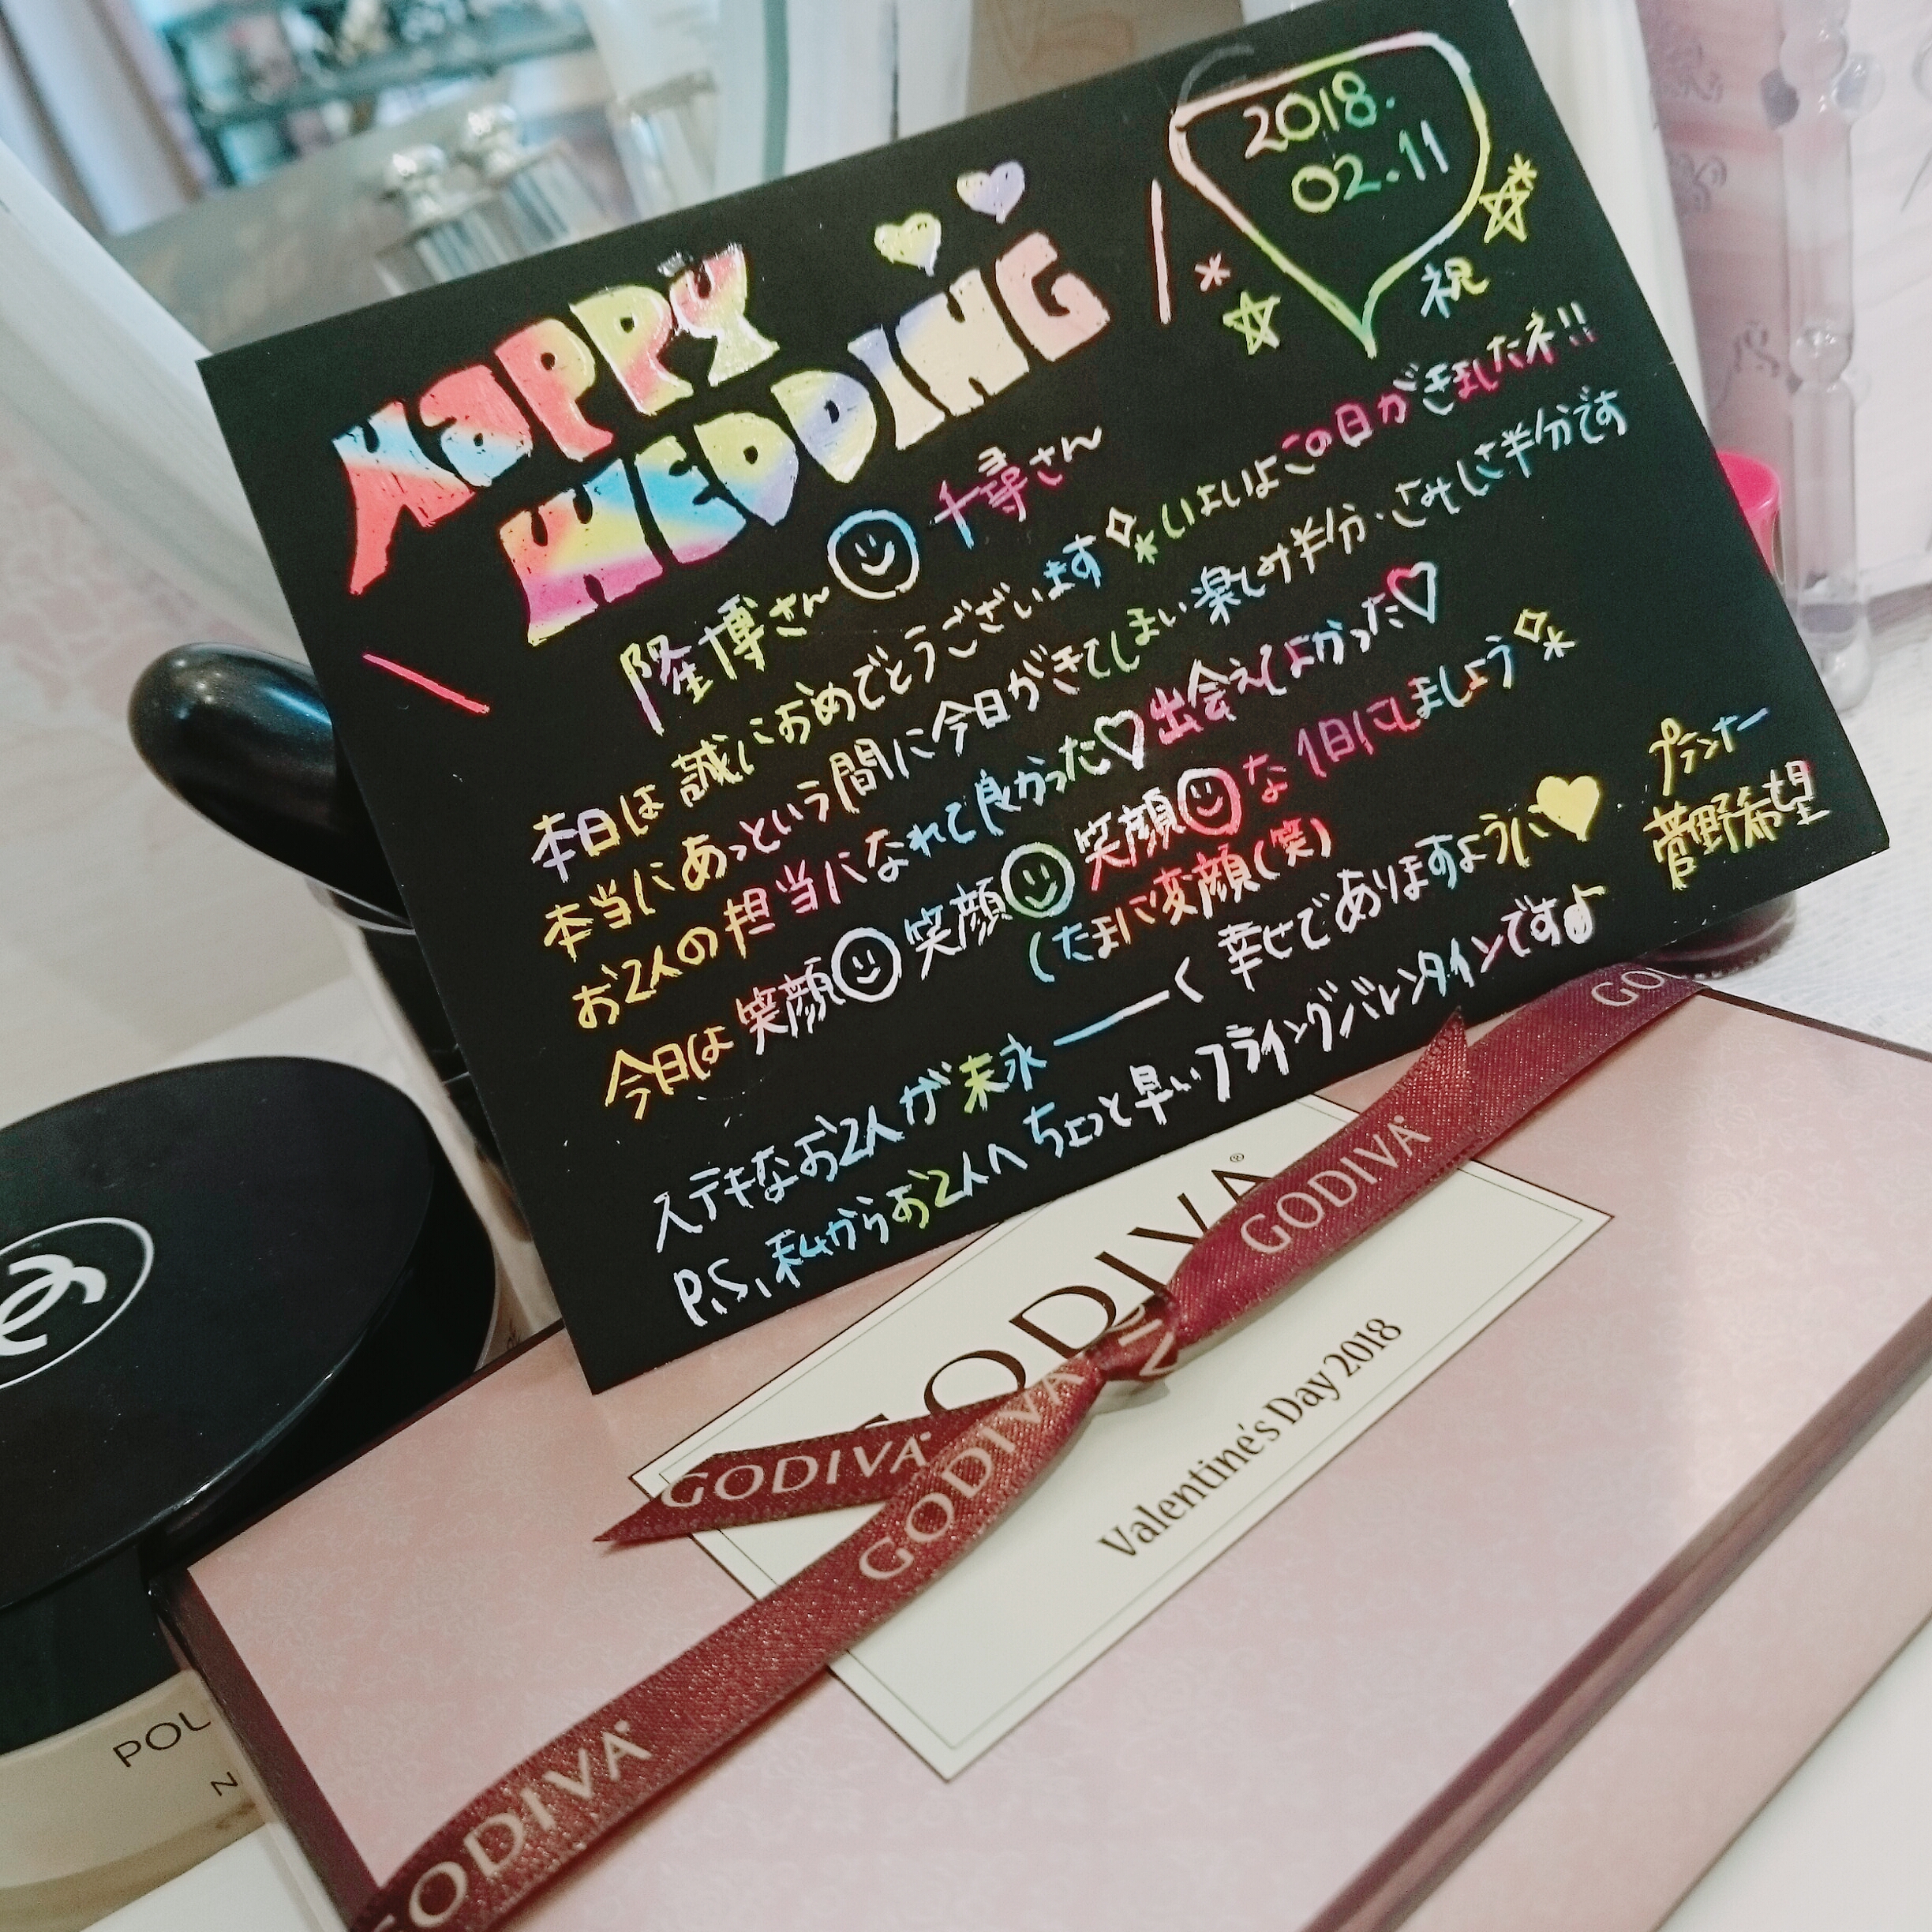 2018.
02.11
祝
HaPPY
WEDDING
隆博さん 千尋さん
本日は誠におめでとうございます いよいよこの日がきましたネ!!
本当にあっという間に今日がきてしまい楽しみ半分・さみしさ半分です
お2人の担当になれて良かった♡出会えてよかった♡
今日は笑顔笑顔笑顔な1日にしましょう
(たまに変顔(笑)
ステキなお2人が末永ーく幸せでありますように
P.S、私からお2人へちょっと早いフライングバレンタインです♪
プランナー
菅野希望
GODIVA
GODIVA
GODIVA
GODIVA
GODIVA
Valentine's Day 2018